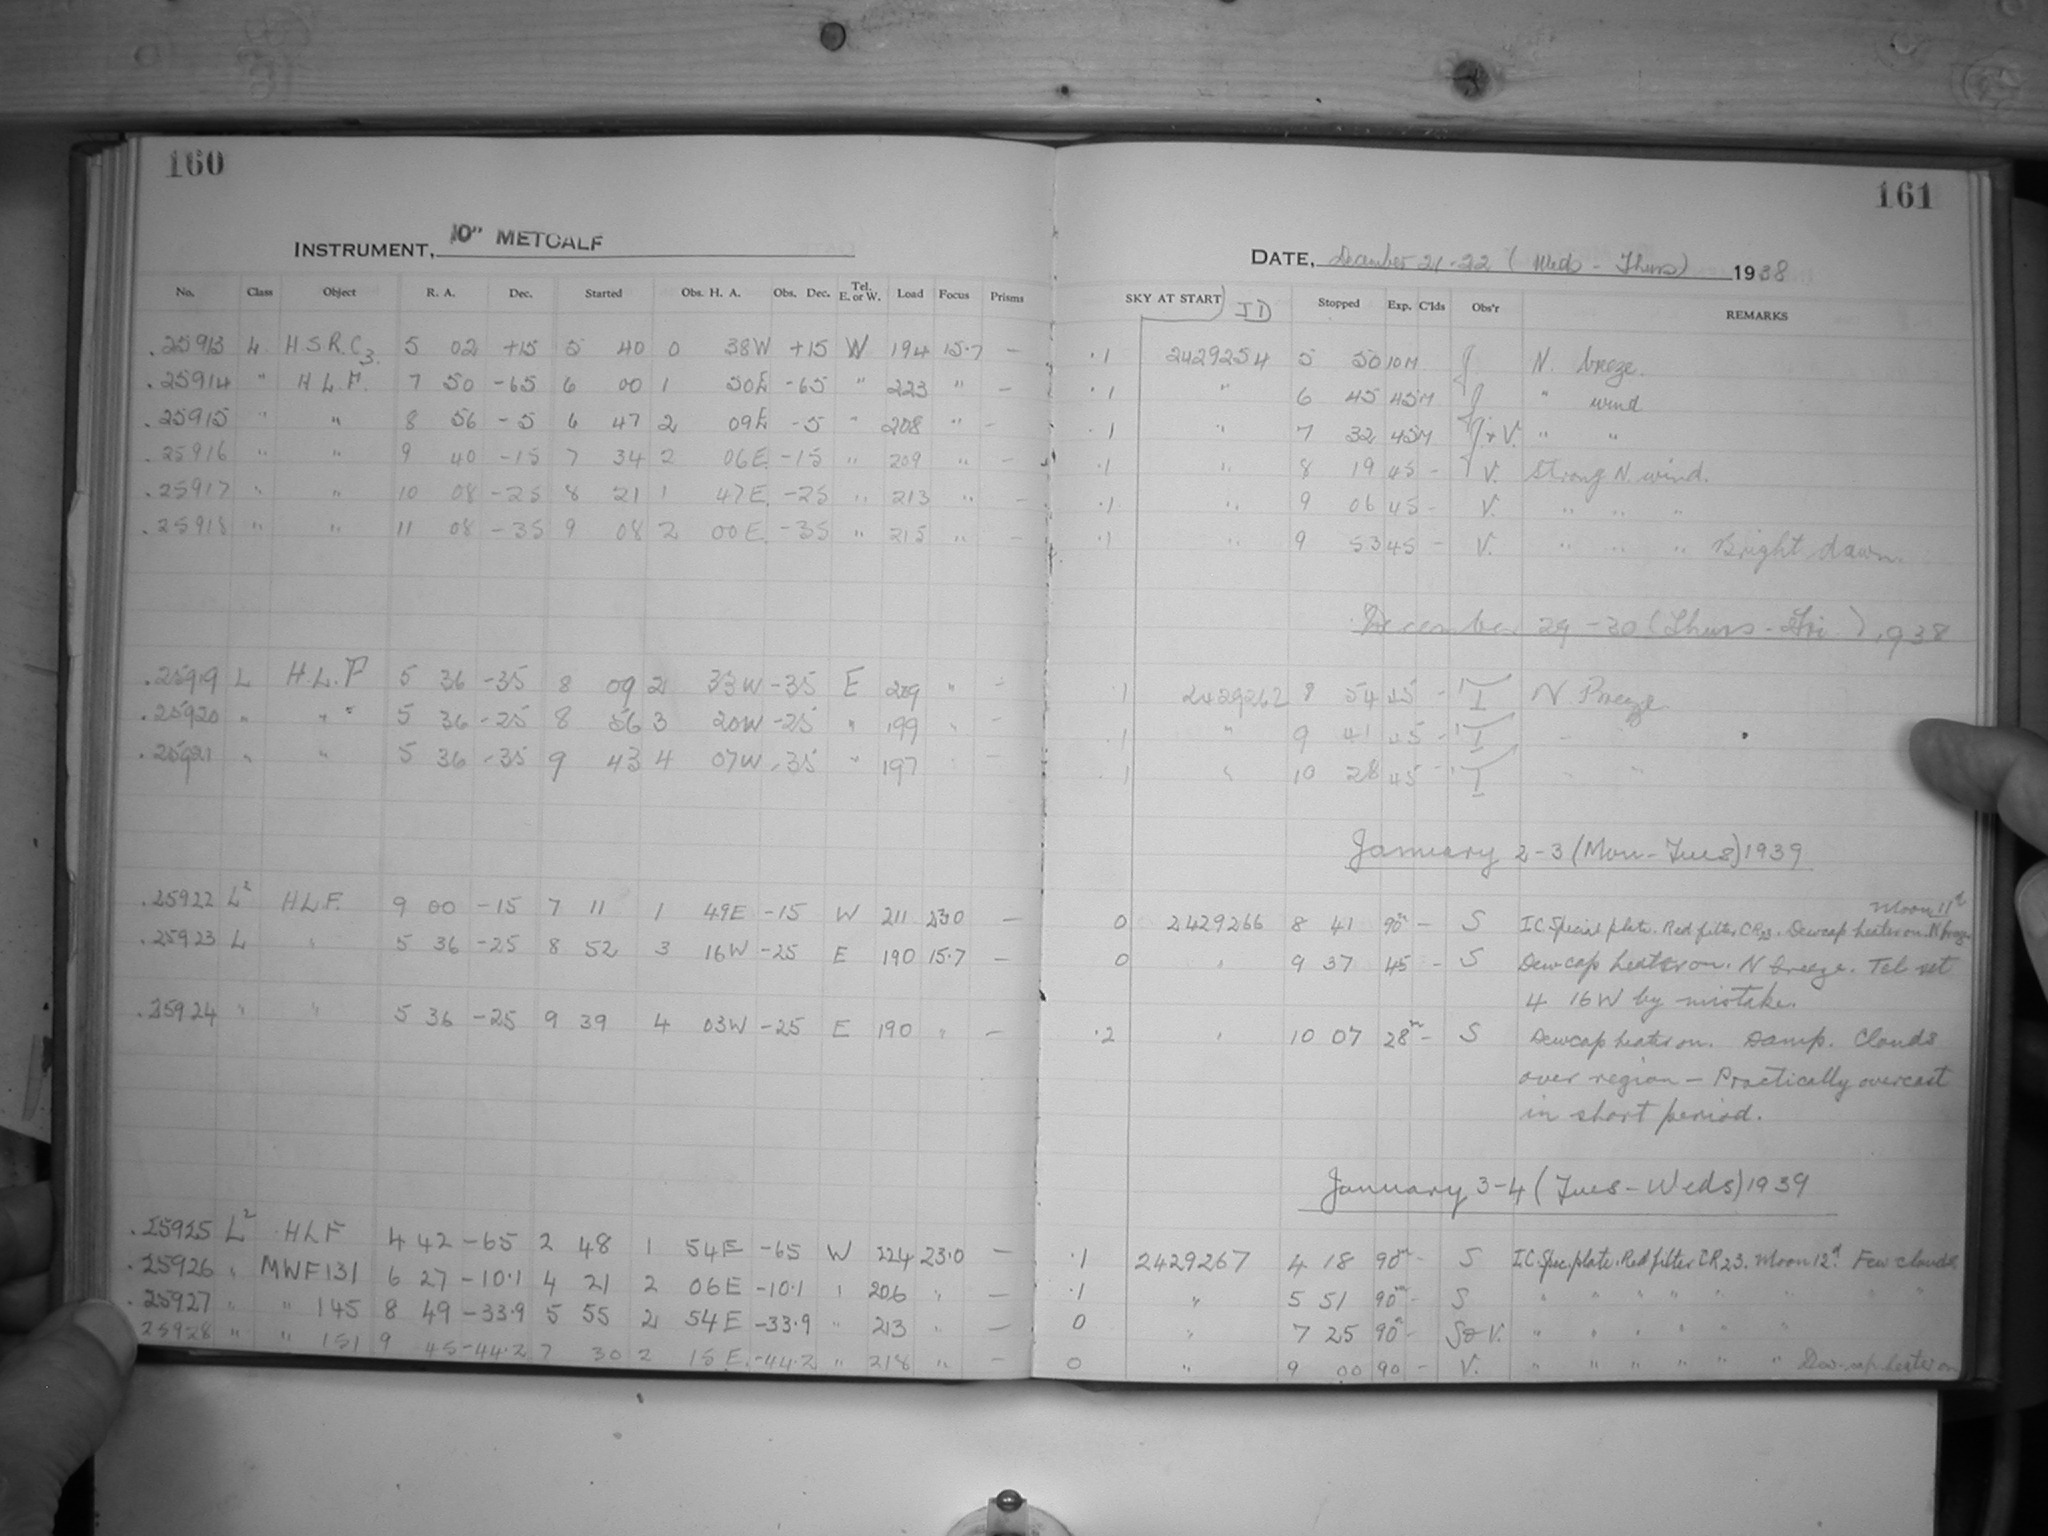 160
INSTRUMENT, 10" METCALF
No. Class Object R. A. Dec. Started Obs. H. A. Obs. Dec. Tel. E. or W. Load Focus Prisms
.25913 L H S R.C3. 5 02 +15 5 40 0 38W +15 W 194 15.7 —
.25914 " H L F. 7 50 -65 6 00 1 50E -65 " 223 " —
.25915 " " 8 56 -5 6 47 2 09E -5 " 208 " —
.25916 " " 9 40 -15 7 34 2 06E. -15 " 209 " —
.25917 " " 10 08 -25 8 21 1 47E. -25 " 213 " —
.25918 " " 11 08 -35 9 08 2 00E. -35 " 215 " —
.25919 L H.L.F 5 36 -35 8 09 2 33W -35 E 209 " —
.25920 " " 5 36 -25 8 56 3 20W -25 " 199 " —
.25921 " " 5 36 -35 9 43 4 07W -35 " 197
.25922 L2 HLF. 9 00 -15 7 11 1 49E -15 W 211 23.0 —
.25923 L " 5 36 -25 8 52 3 16W -25 E 190 15.7 —
.25924 " " 5 36 -25 9 39 4 03W -25 E 190 " —
.25925 L2 HLF 4 42 -65 2 48 1 54E -65 W 224 23.0 —
.25926 " MWF131 6 27 -10.1 4 21 2 06E -10.1 " 206 " —
.25927 " " 145 8 49 -33.9 5 55 2 54E -33.9 " 213 " —
25928 " " 151 9 45 -44.2 7 30 2 15E. -44.2 " 218 " —
161
DATE, December 21-22 (Weds - Thurs) 1938
SKY AT START JD Stopped Exp. C'lds Obs'r REMARKS
.1 2429254 5 50 10M N. breeze.
.1 " 6 45 45M " wind
.1 " 7 32 45M & V. " "
.1 " 8 19 45 - V. Strong N. wind.
.1 " 9 06 45 - V. " " "
.1 " 9 53 45 - V. " " " Bright dawn.
December 29-30 (Thurs - Fri.) 1938
.1 2429262 8 54 45 - N Breeze
.1 " 9 41 45 -
.1 " 10 28 45 - " "
January 2-3 (Mon-Tues) 1939
Moon 11d
0 2429266 8 41 90m — S IC Special plate. Red filter CR23. Dewcap heater on. N breeze
0 " 9 37 45 - S Dewcap heater on. N breeze. Tel set
4 16W by mistake.
.2 " 10 07 28m — S Dewcap heater on. Damp. Clouds
over region — Practically overcast
in short period.
January 3-4 (Tues-Weds) 1939
.1 2429267 4 18 90m - S IC. Spec. plate. Red filter CR23. Moon 12d. Few clouds
.1 " 5 51 90m — S " " " " " " " "
0 " 7 25 90m - S & V. " " " " " "
0 " 9 00 90 - V. " " " " " " Dew-cap heater on